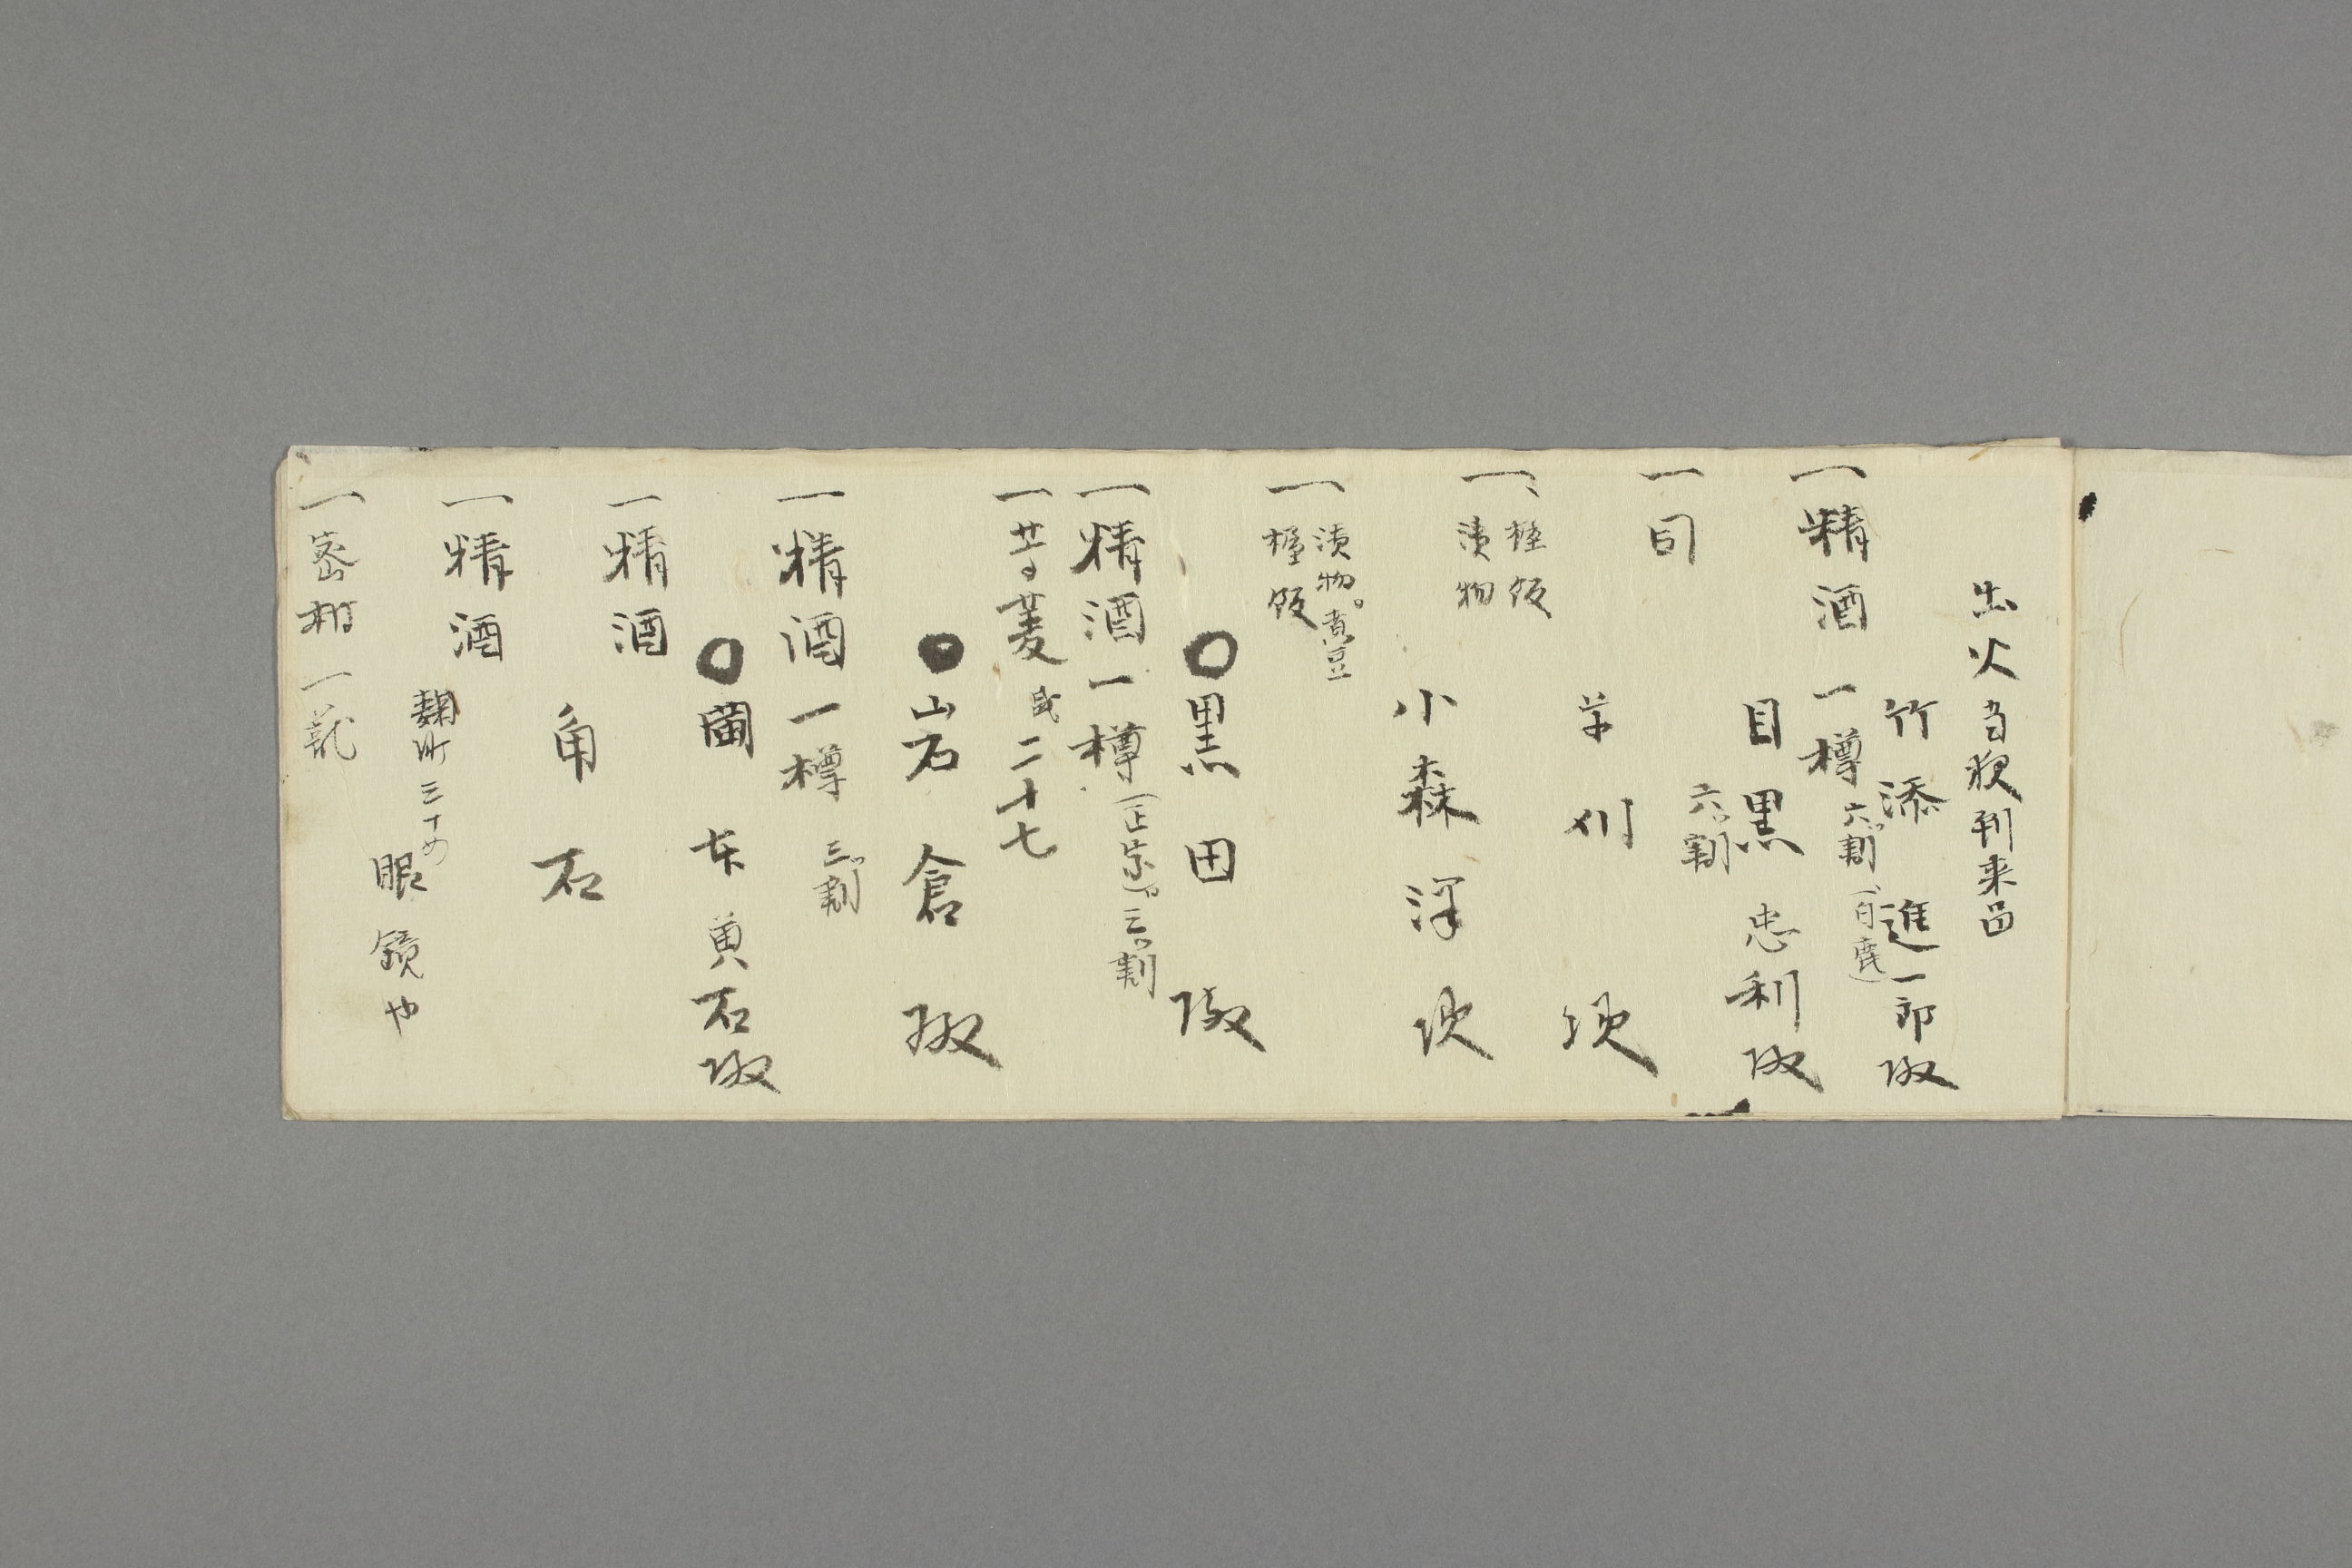 出火当夜到来品
竹添進一郎殿
一精酒一樽六〻割(白鹿)
目黒忠利殿
六〻割
一同
草刈殿
一握飯
漬物
小森澤殿
一漬物。煮豆
握飯
○黒田殿
一精酒一樽(正宗)。三〻割
一芋菱或二十七
●岩倉殿
一精酒一樽三〻割
○蘭東黄石殿
一精酒
角石
一精酒
麹町三丁め
眼鏡や
一蜜柑一籠